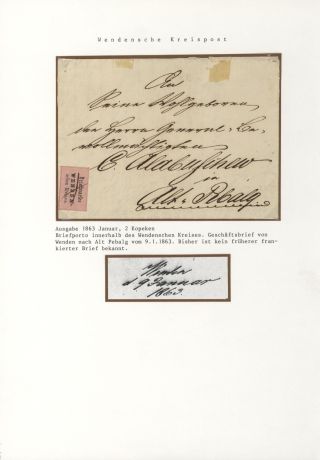 Wendensche Kreispost
An
Seine Wohlgeboren
den Herrn General-Be-
vollmächtigten
C.
in
Alt-Pebalg
Ausgabe 1863 Januar, 2 Kopeken
Briefporto innerhalb des Wendenschen Kreises. Geschäftsbrief von
Wenden nach Alt Pebalg vom 9.1.1863. Bisher ist kein früherer fran-
kierter Brief bekannt.
d 9 Januar
1863